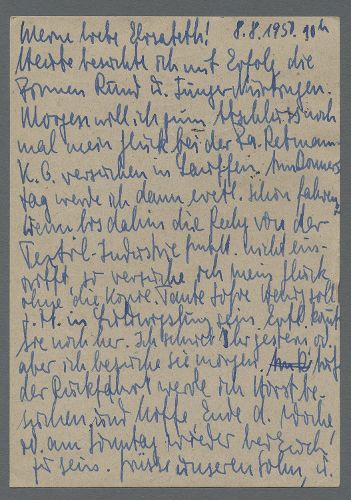 Meine liebe Elisabeth! 8.8.1950. 10h
Heute besuchte ich mit Erfolg die
Firmen Rund u. Junger Nürtingen.
Morgen will ich zum Abschluss noch
mal mein Glück bei der Fa. Rebmann
K.G. versuchen in Lauffen. Am Donners
tag werde ich dann evtl. schon fahren,
wenn bis dahin die von der
Textil-Industrie nicht ein-
trifft, so versuche ich mein Glück
ohne die Kopie. Tante Sofie Wendy soll
z. Zt. in sein. Evtl. kommt
sie noch her. Ich schrieb ihr gestern od.
aber ich besuche sie morgen. Auf
der Rückfahrt werde ich Horst be-
suchen und hoffe Ende d. Woche,
od. am Sonntag wieder bei Euch
zu sein. Grüsse unseren Sohn, u.